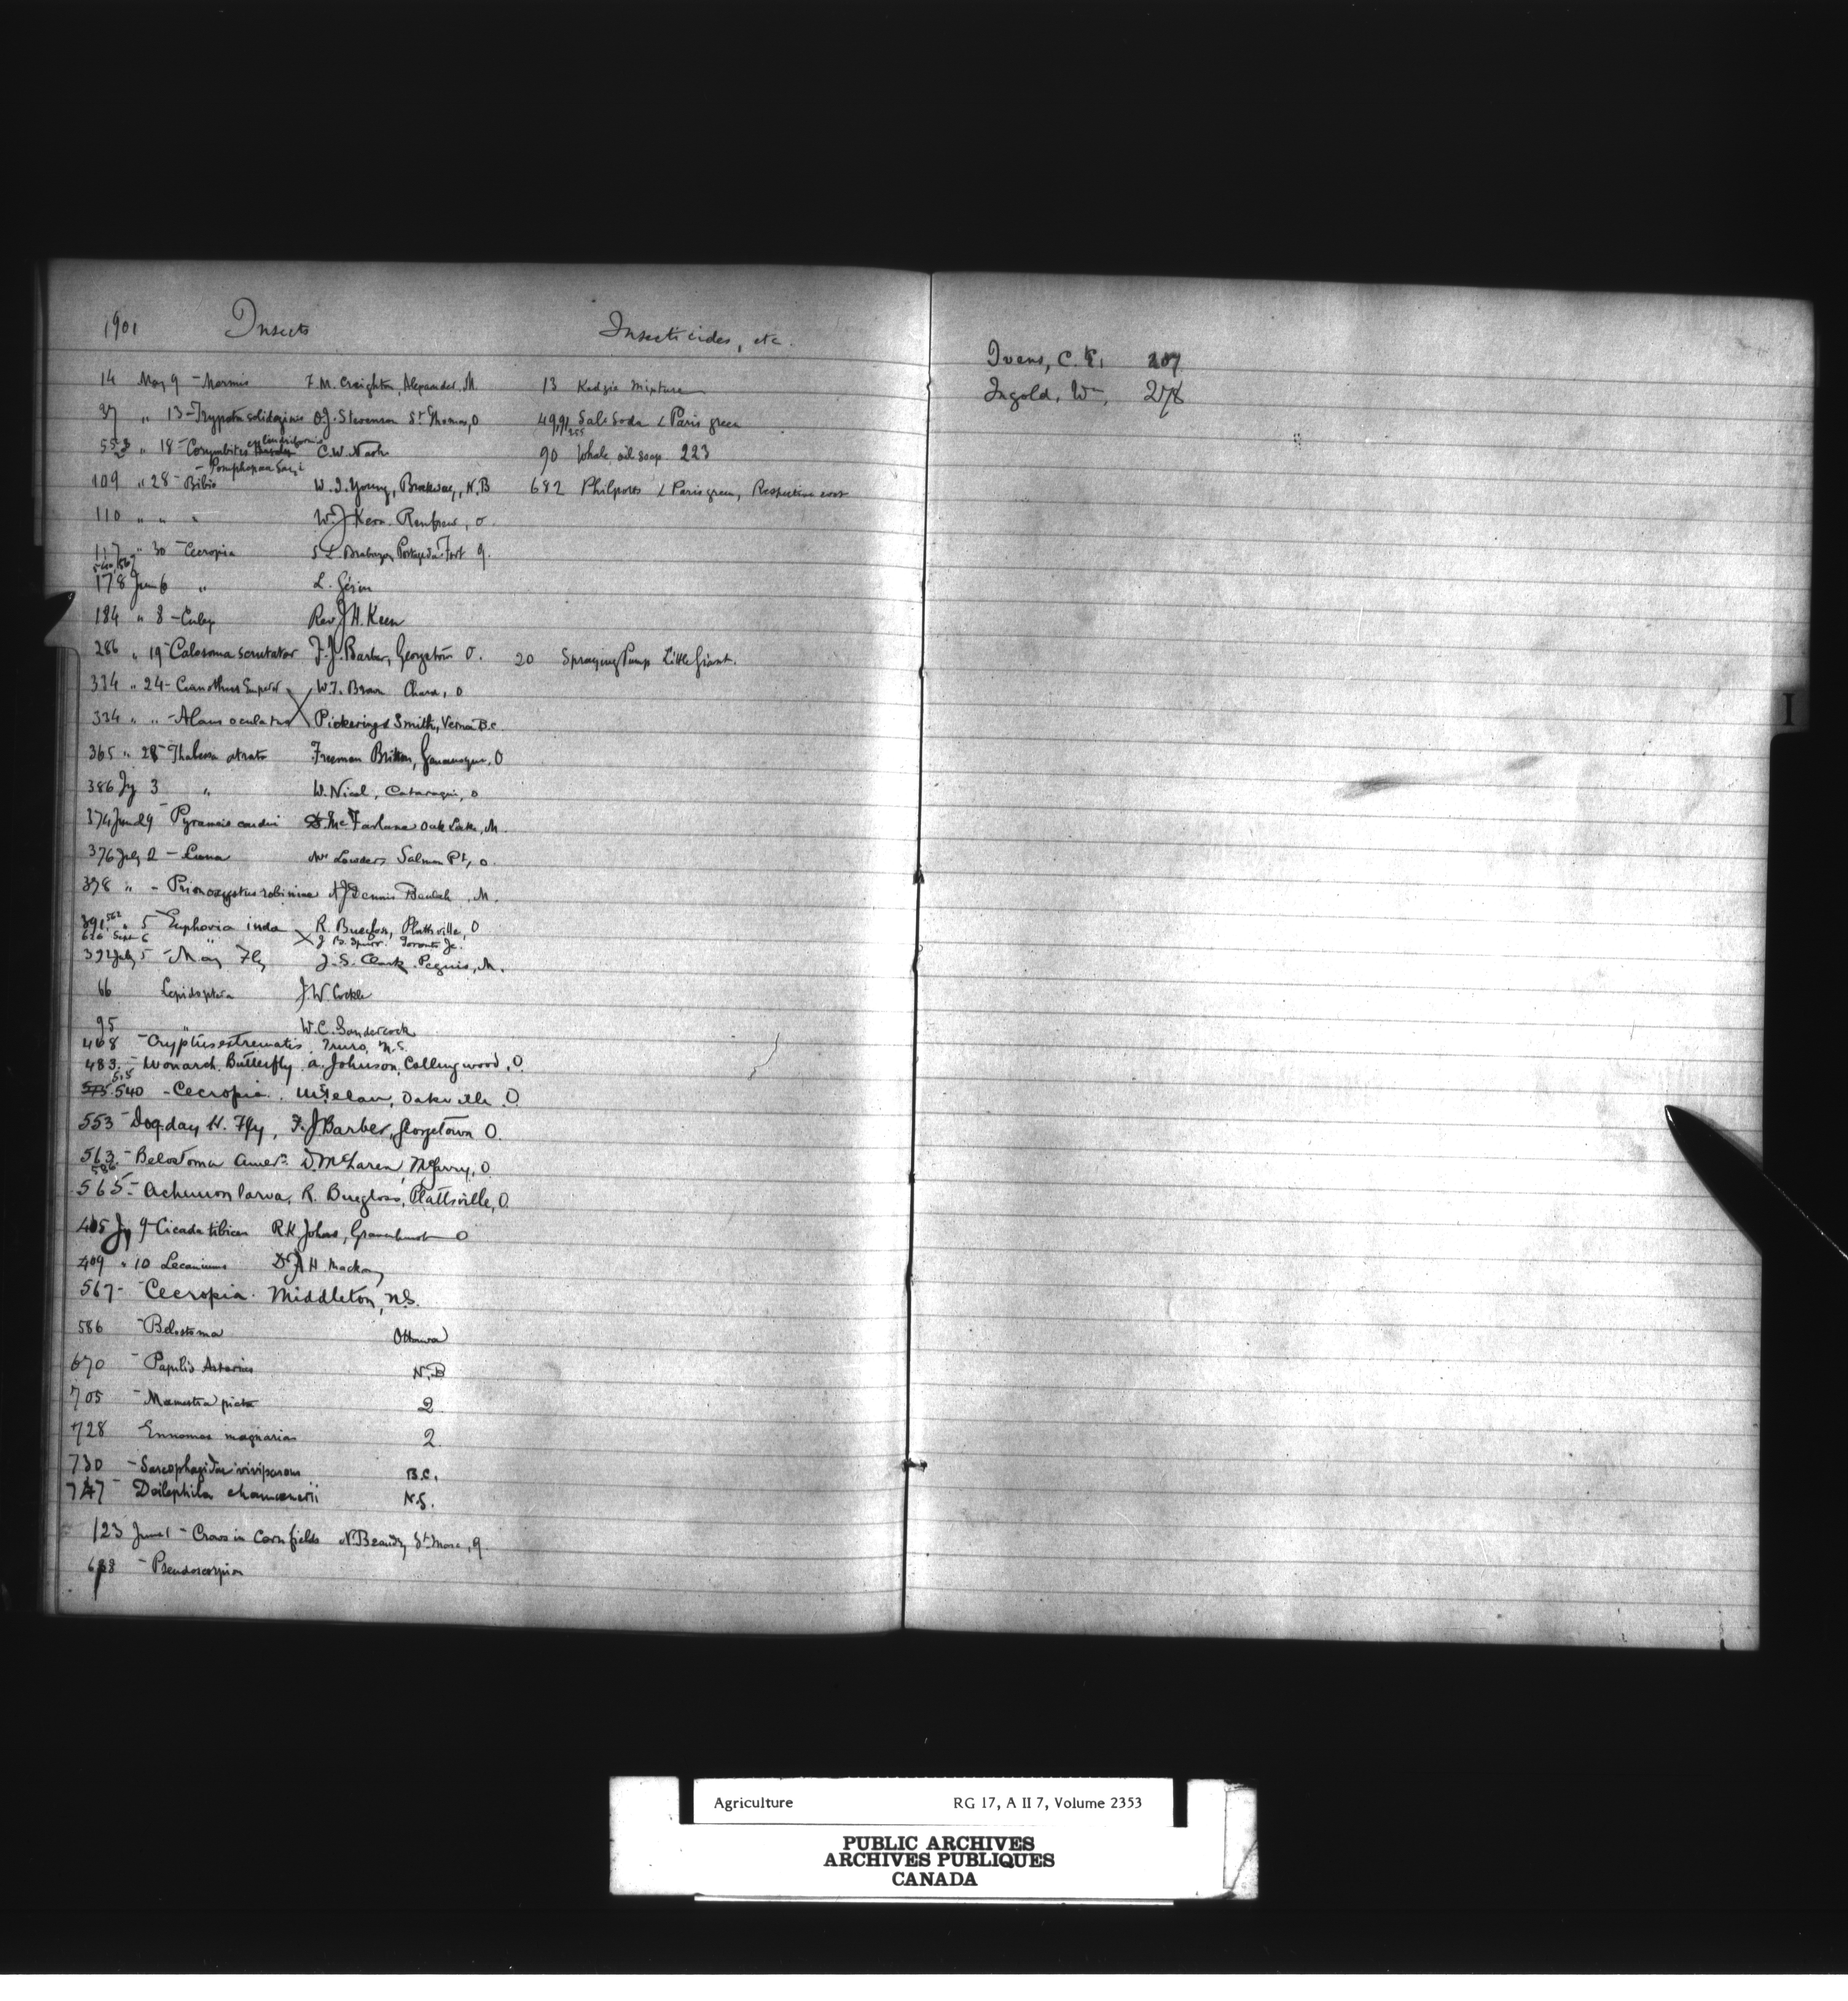 1901 Insects Insecticides, etc.
14 May 9 - Mormis F. M. Creighton, Alexander, M. 13 Kedzie Mixture
37 " 13 - Trypeta solidaginis O.J. Stevenson St Thomas, O 49,91 Sal Soda & Paris green
255
cylindriformis
553 " 18 - Corymbites C.W. Nash 90 Whale oil soap 223
- Pomphopoea Sayi
109 " 28 - Bibio W. I. Young, N.B 682 Philpotts & Paris green, Respective cost
110 " " " W. J Kerr Renfrew, O.
117 " 30 - Cecropia S. L. Brabazon Portage du Fort Q.
540, 567
178 June 6 " L. Gérin
184 " 8 - Culex Rev J H. Keen
286 " 19 - Calosoma scrutator F. J. Barber, Georgetown O. 20 Spraying Pump Little Giant.
334 " 24 - Ceanothus Superor W. T. Brown O
334 " " - Alaus oculatus Pickering & Smith, B.C.
365 " 28 - Thalessa atrata Freeman Britton, Gananoque, O
386 Jy 3 " W. Nicol, Cataraqui, O
374 June 29 - Pyrameis cardui McFarlane Oak Lake, M.
376 July 2 - Luna Salmon Pt, O.
378 " - Prionoxystus robiniae A J Dennis M.
391, 562 " 5 - Euphoria inda R. Burgloss, Plattsville, O
626 Sept 6 " J. B. Spurr. Toronto Jc.
392 July 5 - May Fly J. S. Clark. Peguis, M.
66 Lepidoptera J. W. Cockle
95 " W. C. Sandercock
468 - Cryptus extrematis. Truro, N.S.
483. - Monarch. Butterfly. A. Johnson, Collingwood, O.
515
540 - Cecropia. Oakville. O.
553 - Dog-day H. Fly, F. J Barber, Georgetown O.
563. - Belostoma Amern. D. McLaren, McGarry, O.
586
565 - Achemon larva, R. Burgloss, Plattsville, O
405 Jy 9 - Cicada tibicen R.K. Johns, Gravenhurst O
409 " 10 Lecaniums Dr A H. Mackay
567 - Cecropia. Middleton, N.S.
586 - Belostoma Ottawa
670 - Papilio Asterius N.B
705 - Mamestra picta 2
728 - Ennomos magnarius 2
730 - Sarcophagidae viviparous B.C.
747 - Deilephila chamaenerii N.S.
123 June 1 - Crows in Corn fields N. Beaudry Q.
688 - Pseudoscorpion
Ivens, C. E. 207
Ingold, Wm, 278
I
Agriculture RG 17, A II 7, Volume 2353
PUBLIC ARCHIVES
ARCHIVES PUBLIQUES
CANADA